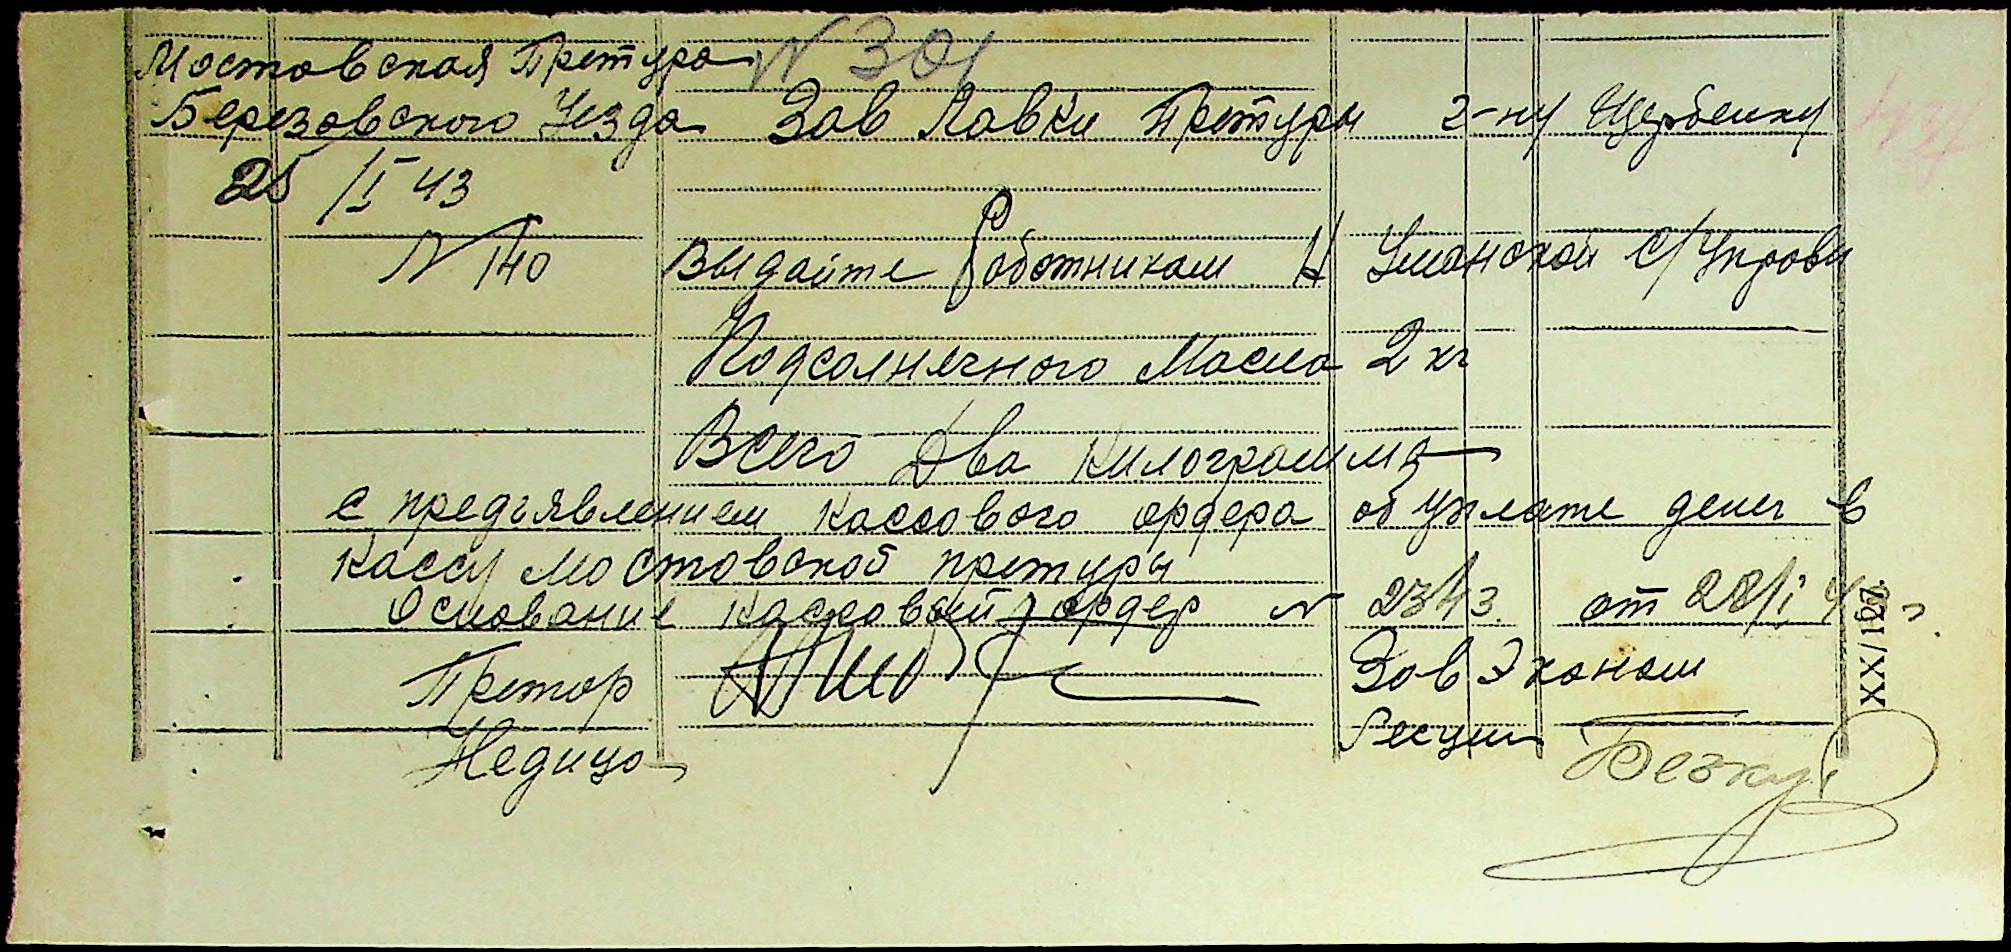 N 301
Мостовская Претура
Березовского Уезда Зав Лавки Претуры г-ну Щербенку
25/I 43
N 140 Выдайте Работникам Н Уманской С/Управы
Подсолнечного Масла 2 кг
Всего Два килограмма
с предъявлением кассового ордера об уплате денег в
кассу Мостовской претуры
Основание кассовый ордер N 2343 от 28/I 43
Претор Зав Эконом
XX/1927